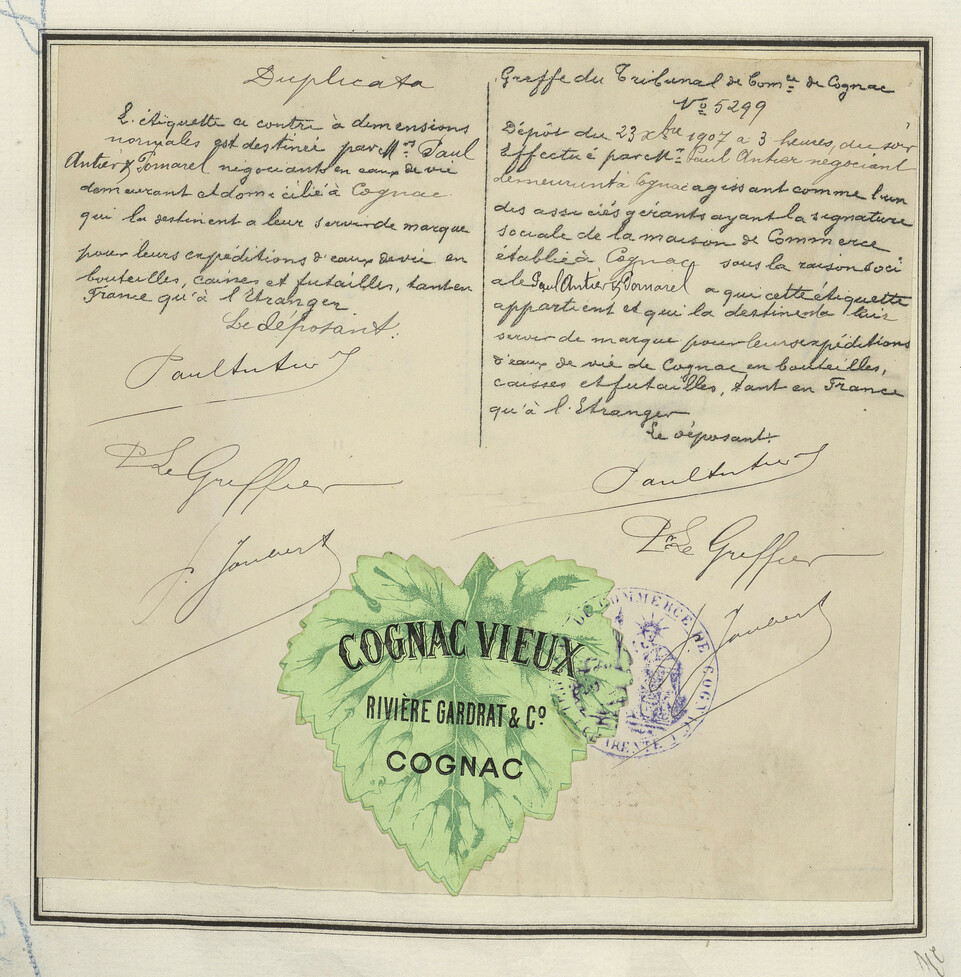 Duplicata
L'étiquette ci contre à dimensions
normales est destinée par Mrs Paul
Antier & Pomarel négociants en eaux de vie
demeurant et domicilié à Cognac
qui la destinent a leur servir de marque
pour leurs expéditions d'eaux de vie en
bouteilles, caisses et futailles, tant en
France qu'à l'Etranger
Le déposant.
Paul Antier
Pr Le Greffier
J. Joubert
Greffe du Tribunal de Comce de Cognac
No 5299
Dépôt du 23 Xbre 1907 a 3 heures, du soir
Effectué par Mr Paul Antier négociant
demeurant à Cognac agissant comme l'un
des associés gérants ayant la signature
sociale de la maison de Commerce
établie à Cognac sous la raison soci
ale Paul Antier & Pomarel a qui cette étiquette
appartient et qui la destinent a leur
servir de marque pour leurs expéditions
d'eaux de vie de Cognac en bouteilles,
caisses et futailles, tant en France
qu'à l'Etranger
Le déposant.
Paul Antier
Pr Le Greffier
J. Joubert
COGNAC VIEUX
RIVIÈRE GARDRAT & Co
COGNAC
DE COMMERCE DE COGNAC